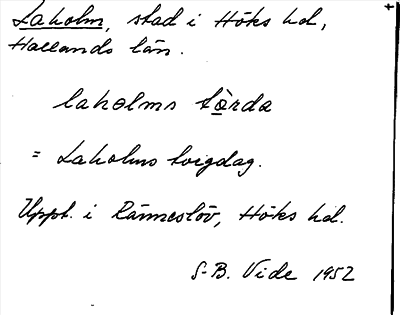 Laholm, stad i Höks hd,
Hallands län.
laholms tòrda
= Laholms torgdag.
Uppt. i Ränneslöv, Höks hd.
S-B. Vide 1952